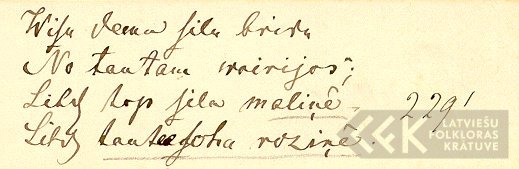 Wiſu deenu ſilu bridu
No tautam wairijos;
Lihdſ top ſila maliņê 2291
Lihdſ tauteeſcha roziņê.
LATVIEŠU
FOLKLORAS
KRĀTUVE